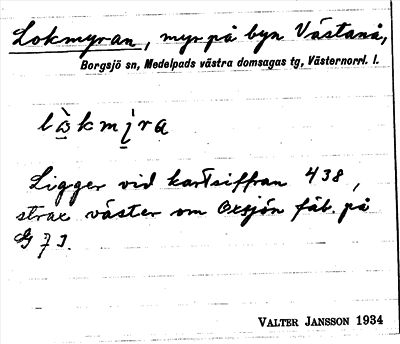 Lokmyran, myr på byn Västanå,
Borgsjö sn, Medelpads västra domsagas tg, Västernorrl. l.
Ligger vid kartsiffran 438,
strax väster om Oxsjön fäb. på
VALTER JANSSON 1934